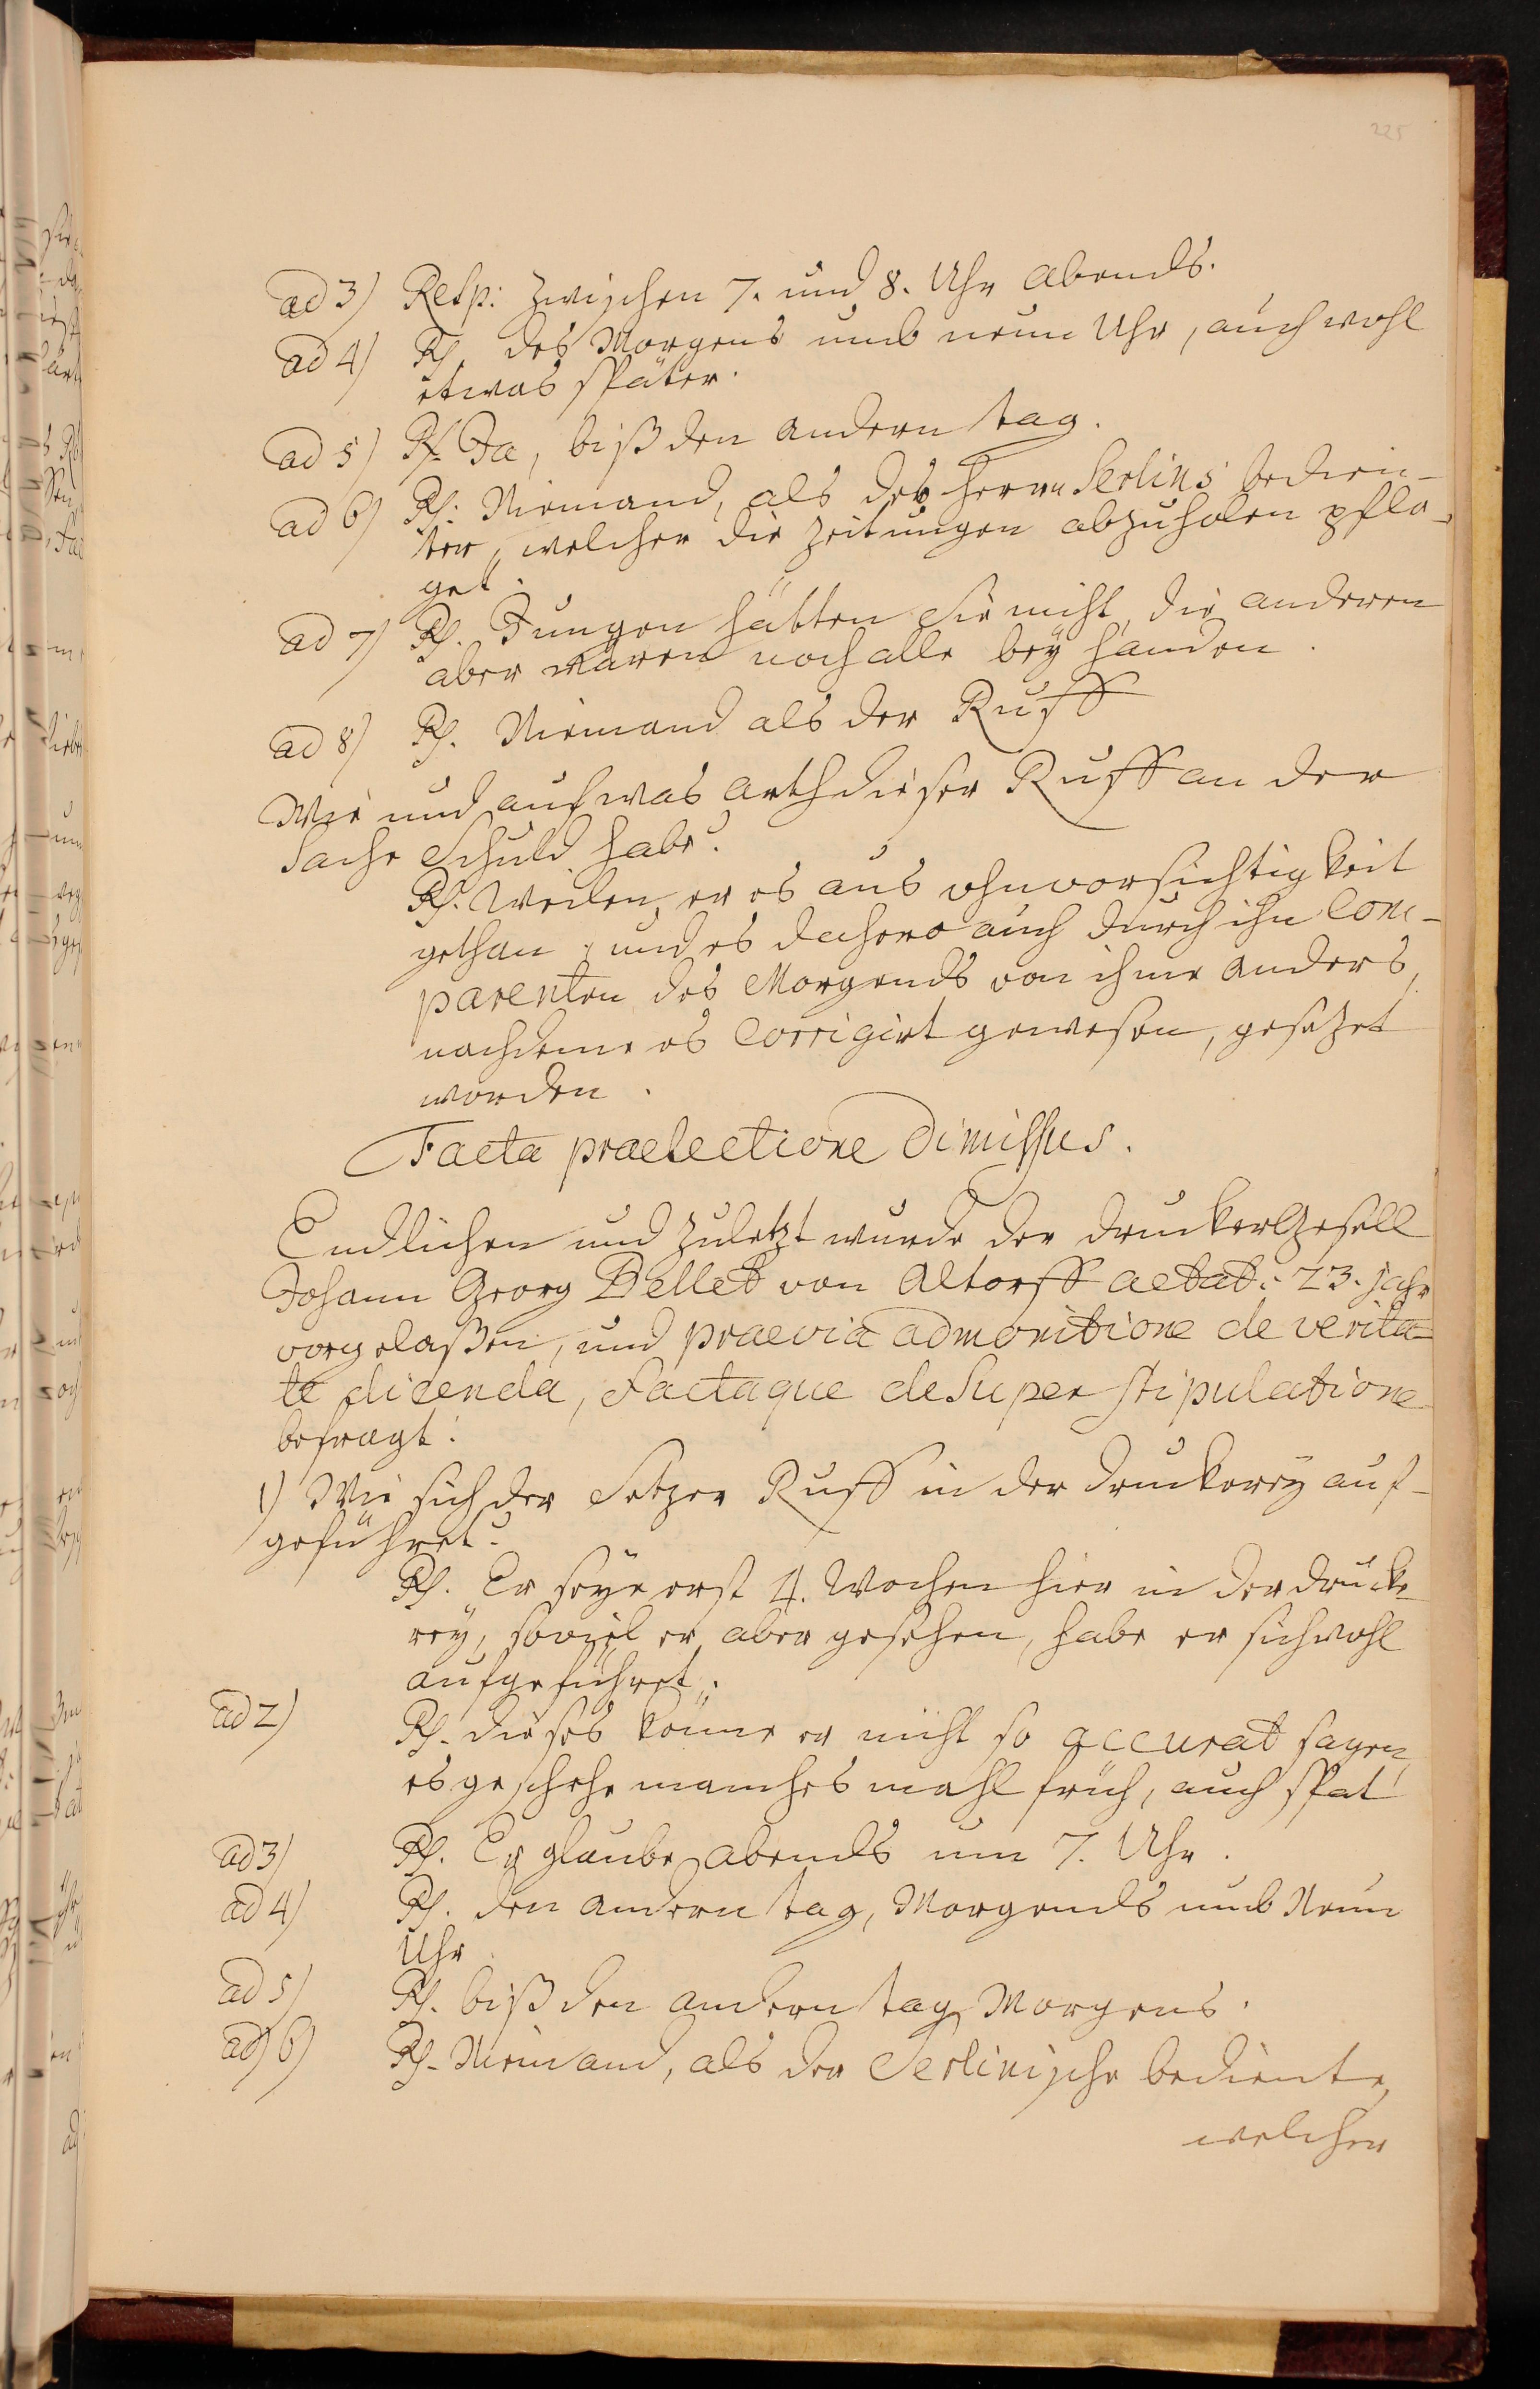 225
ad 3) Resp: zwischen 7. und 8. Uhr abends.
ad 4) Rs. des Morgens umb neun Uhr, auch wohl
etwas später.
ad 5) Rs. Ja, biß den andern tag.
ad 6) Rs: Niemand, als des Herrn Serlins bedien-
ter, welcher die Zeitungen abzuholen pfle-
get.
ad 7) Rs. Jungen hätten sie nicht, die anderen
aber wären noch alle bey handen.
ad 8) Rs. Niemand als der Ruff
Wie und auf was arth dieser Ruff an der
Sache Schuld habe?
Rs. Weilen er es aus ohnvorsichtigkeit
gethan, und es dahero auch durch ihn Com-
parenten des Morgends von ihme anders,
nachdeme es Corrigirt gewesen, gesezet
worden.
Facta praelectione dimissus.
Endlichen und zuletzt wurde der druckerGesell
Johann Georg Dellet von Altorff aetat: 23. Jahr
vorgelaßen, und praevia admonitione de verita-
te dicenda, factaque desuper stipulatione
befragt:
1) Wie sich der Setzer Ruff in der druckerey auf-
geführet?
Rs. Er seye erst 4. Wochen hier in der drucke-
rey, soviel er aber gesehen, habe er sich wohl
aufgeführet.
ad 2) Rs. dieses könne er nicht so accurat sagen,
es geschehe manches mahl früh, auch spat
ad 3) Rs. Er glaube abends um 7. Uhr.
ad 4) Rs. den andern tag, Morgends umb Neun
Uhr
ad 5) Rs. biß den andern tag Morgens.
ad 6) Rs. Niemand, als der Serlinische bediente,
welcher